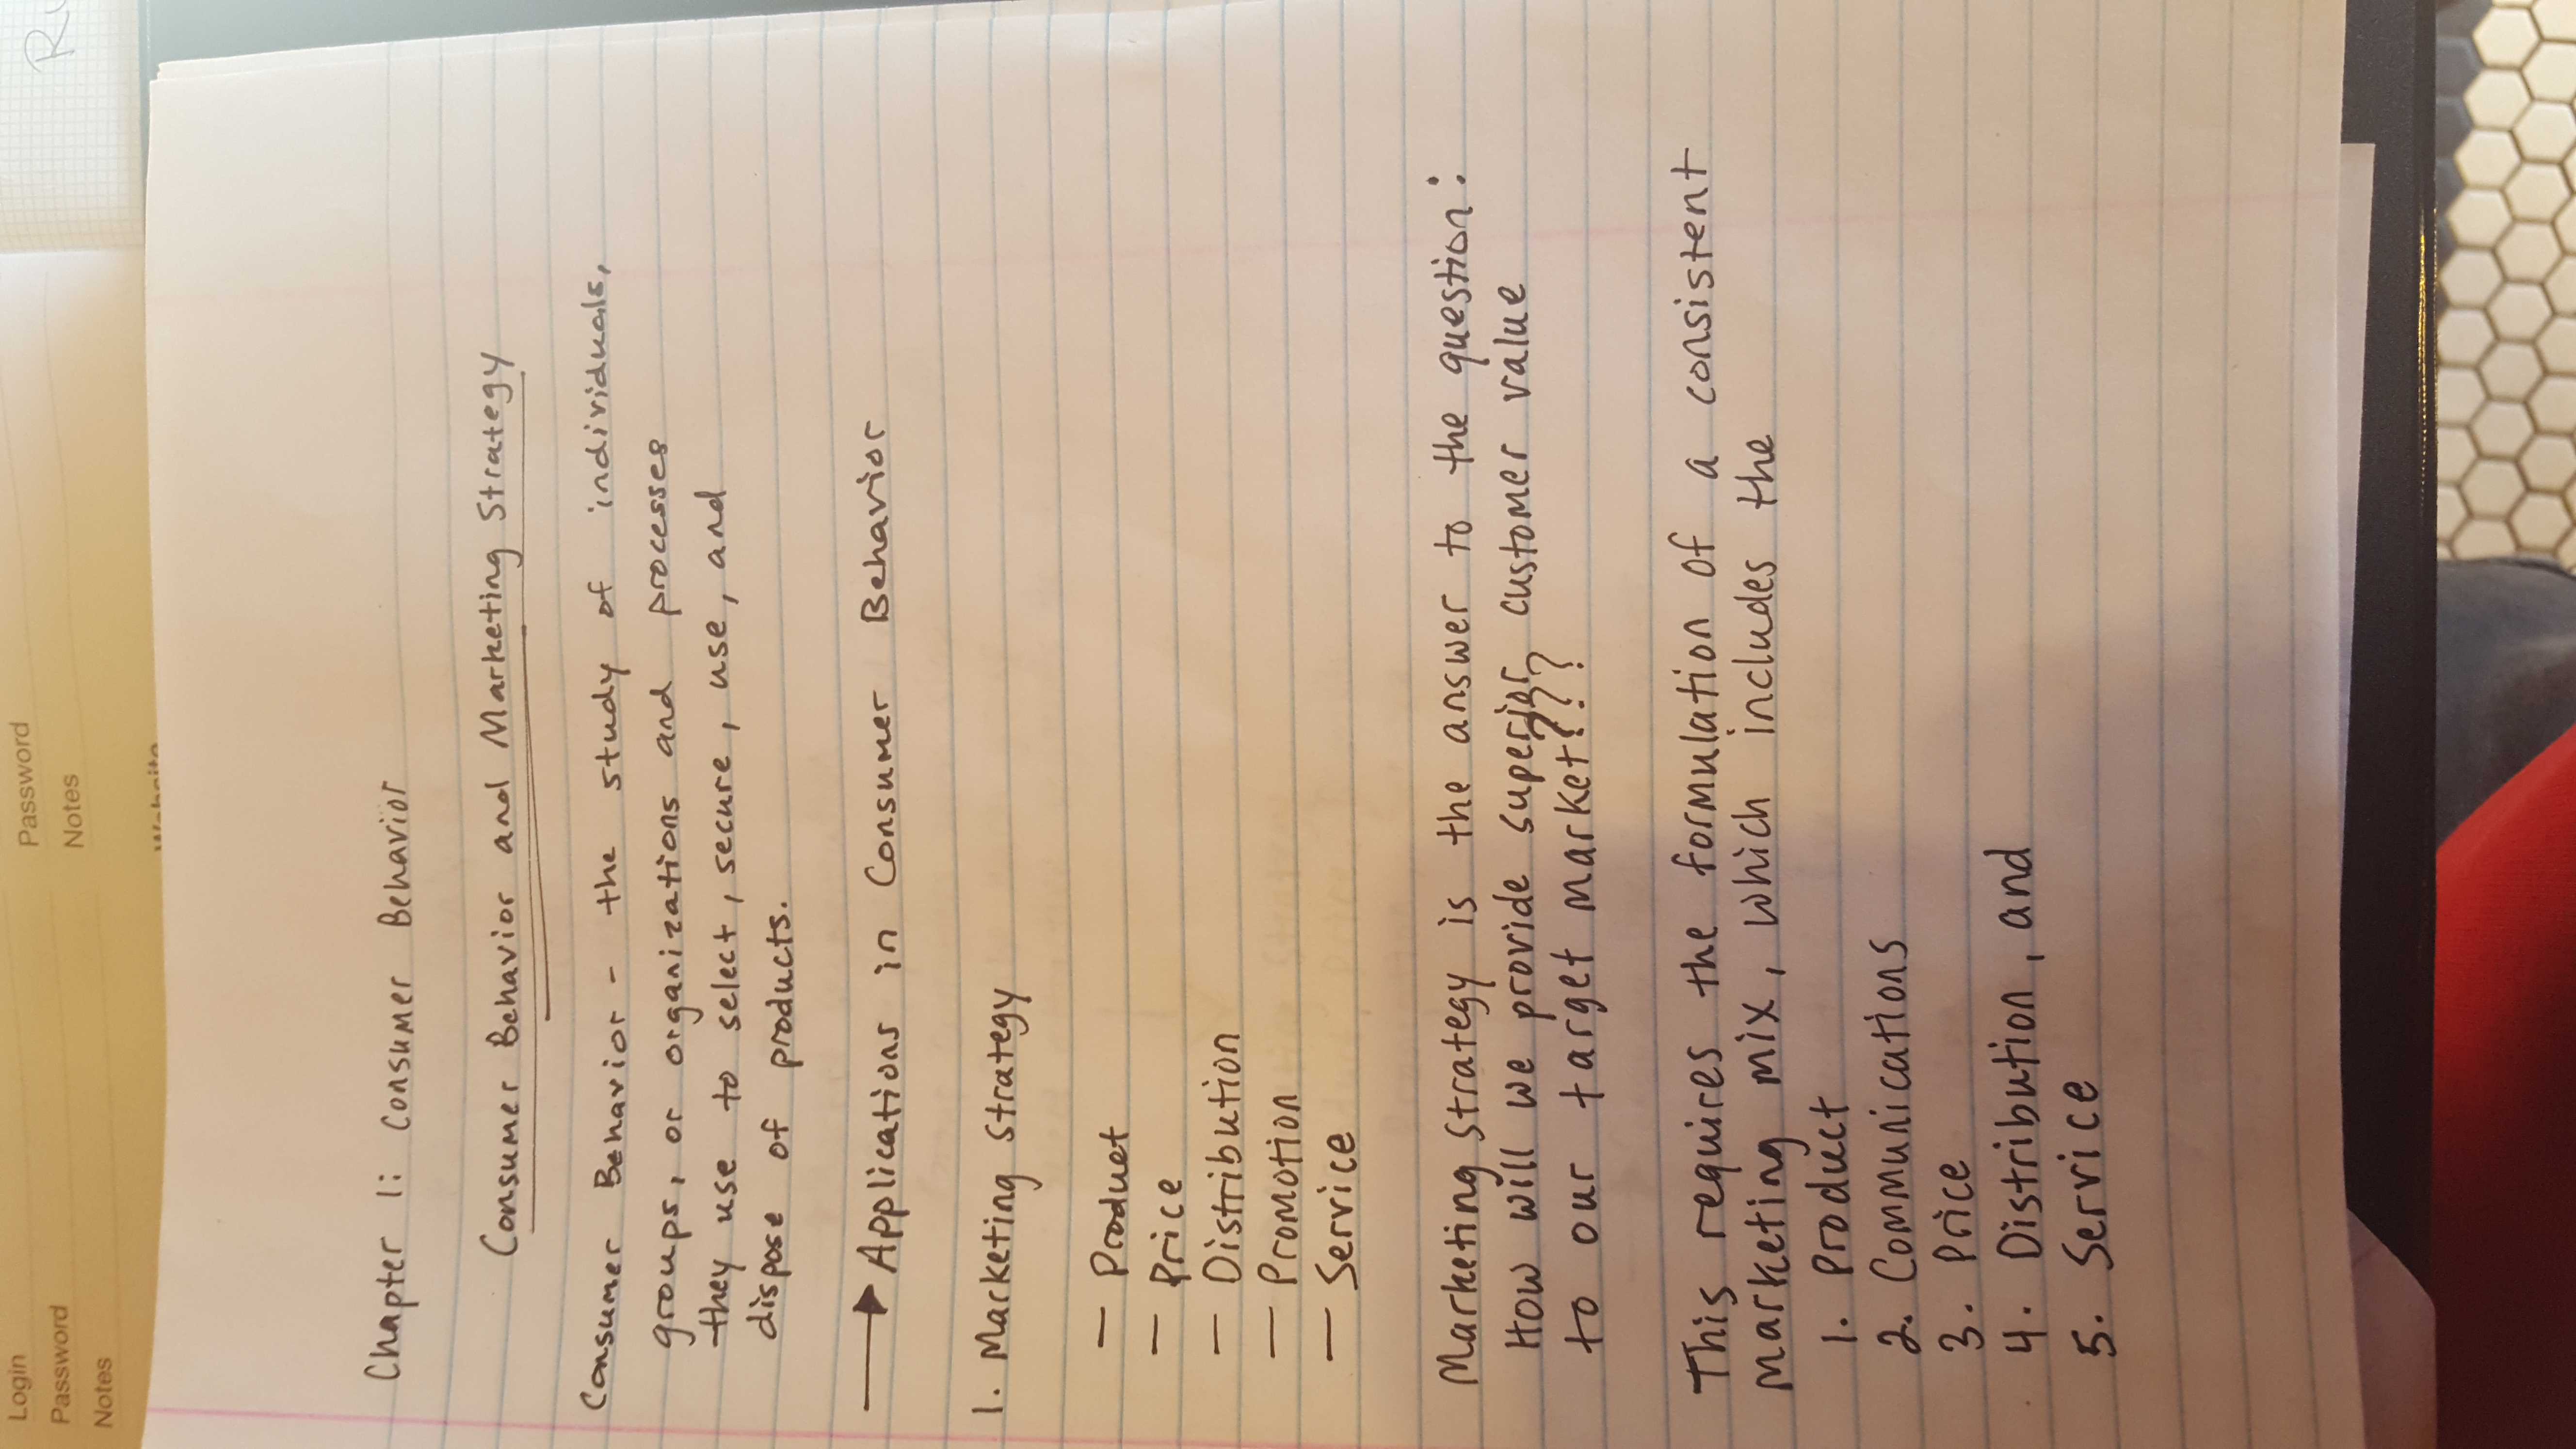 Chapter 1: Consumer Behavior
Consumer Behavior and Marketing Strategy
Consumer Behavior - the study of individuals,
groups, or organizations and processes
they use to select, secure, use, and
dispose of products.
Applications in Consumer Behavior
1. Marketing Strategy
— Product
— Price
— Distribution
— Promotion
— Service
Marketing Strategy is the answer to the question:
How will we provide superior customer value
to our target market???
This requires the formulation of a consistent
marketing mix, which includes the
1. Product
2. Communications
3. Price
4. Distribution, and
5. Service
Login
Password
Notes
Password
Notes